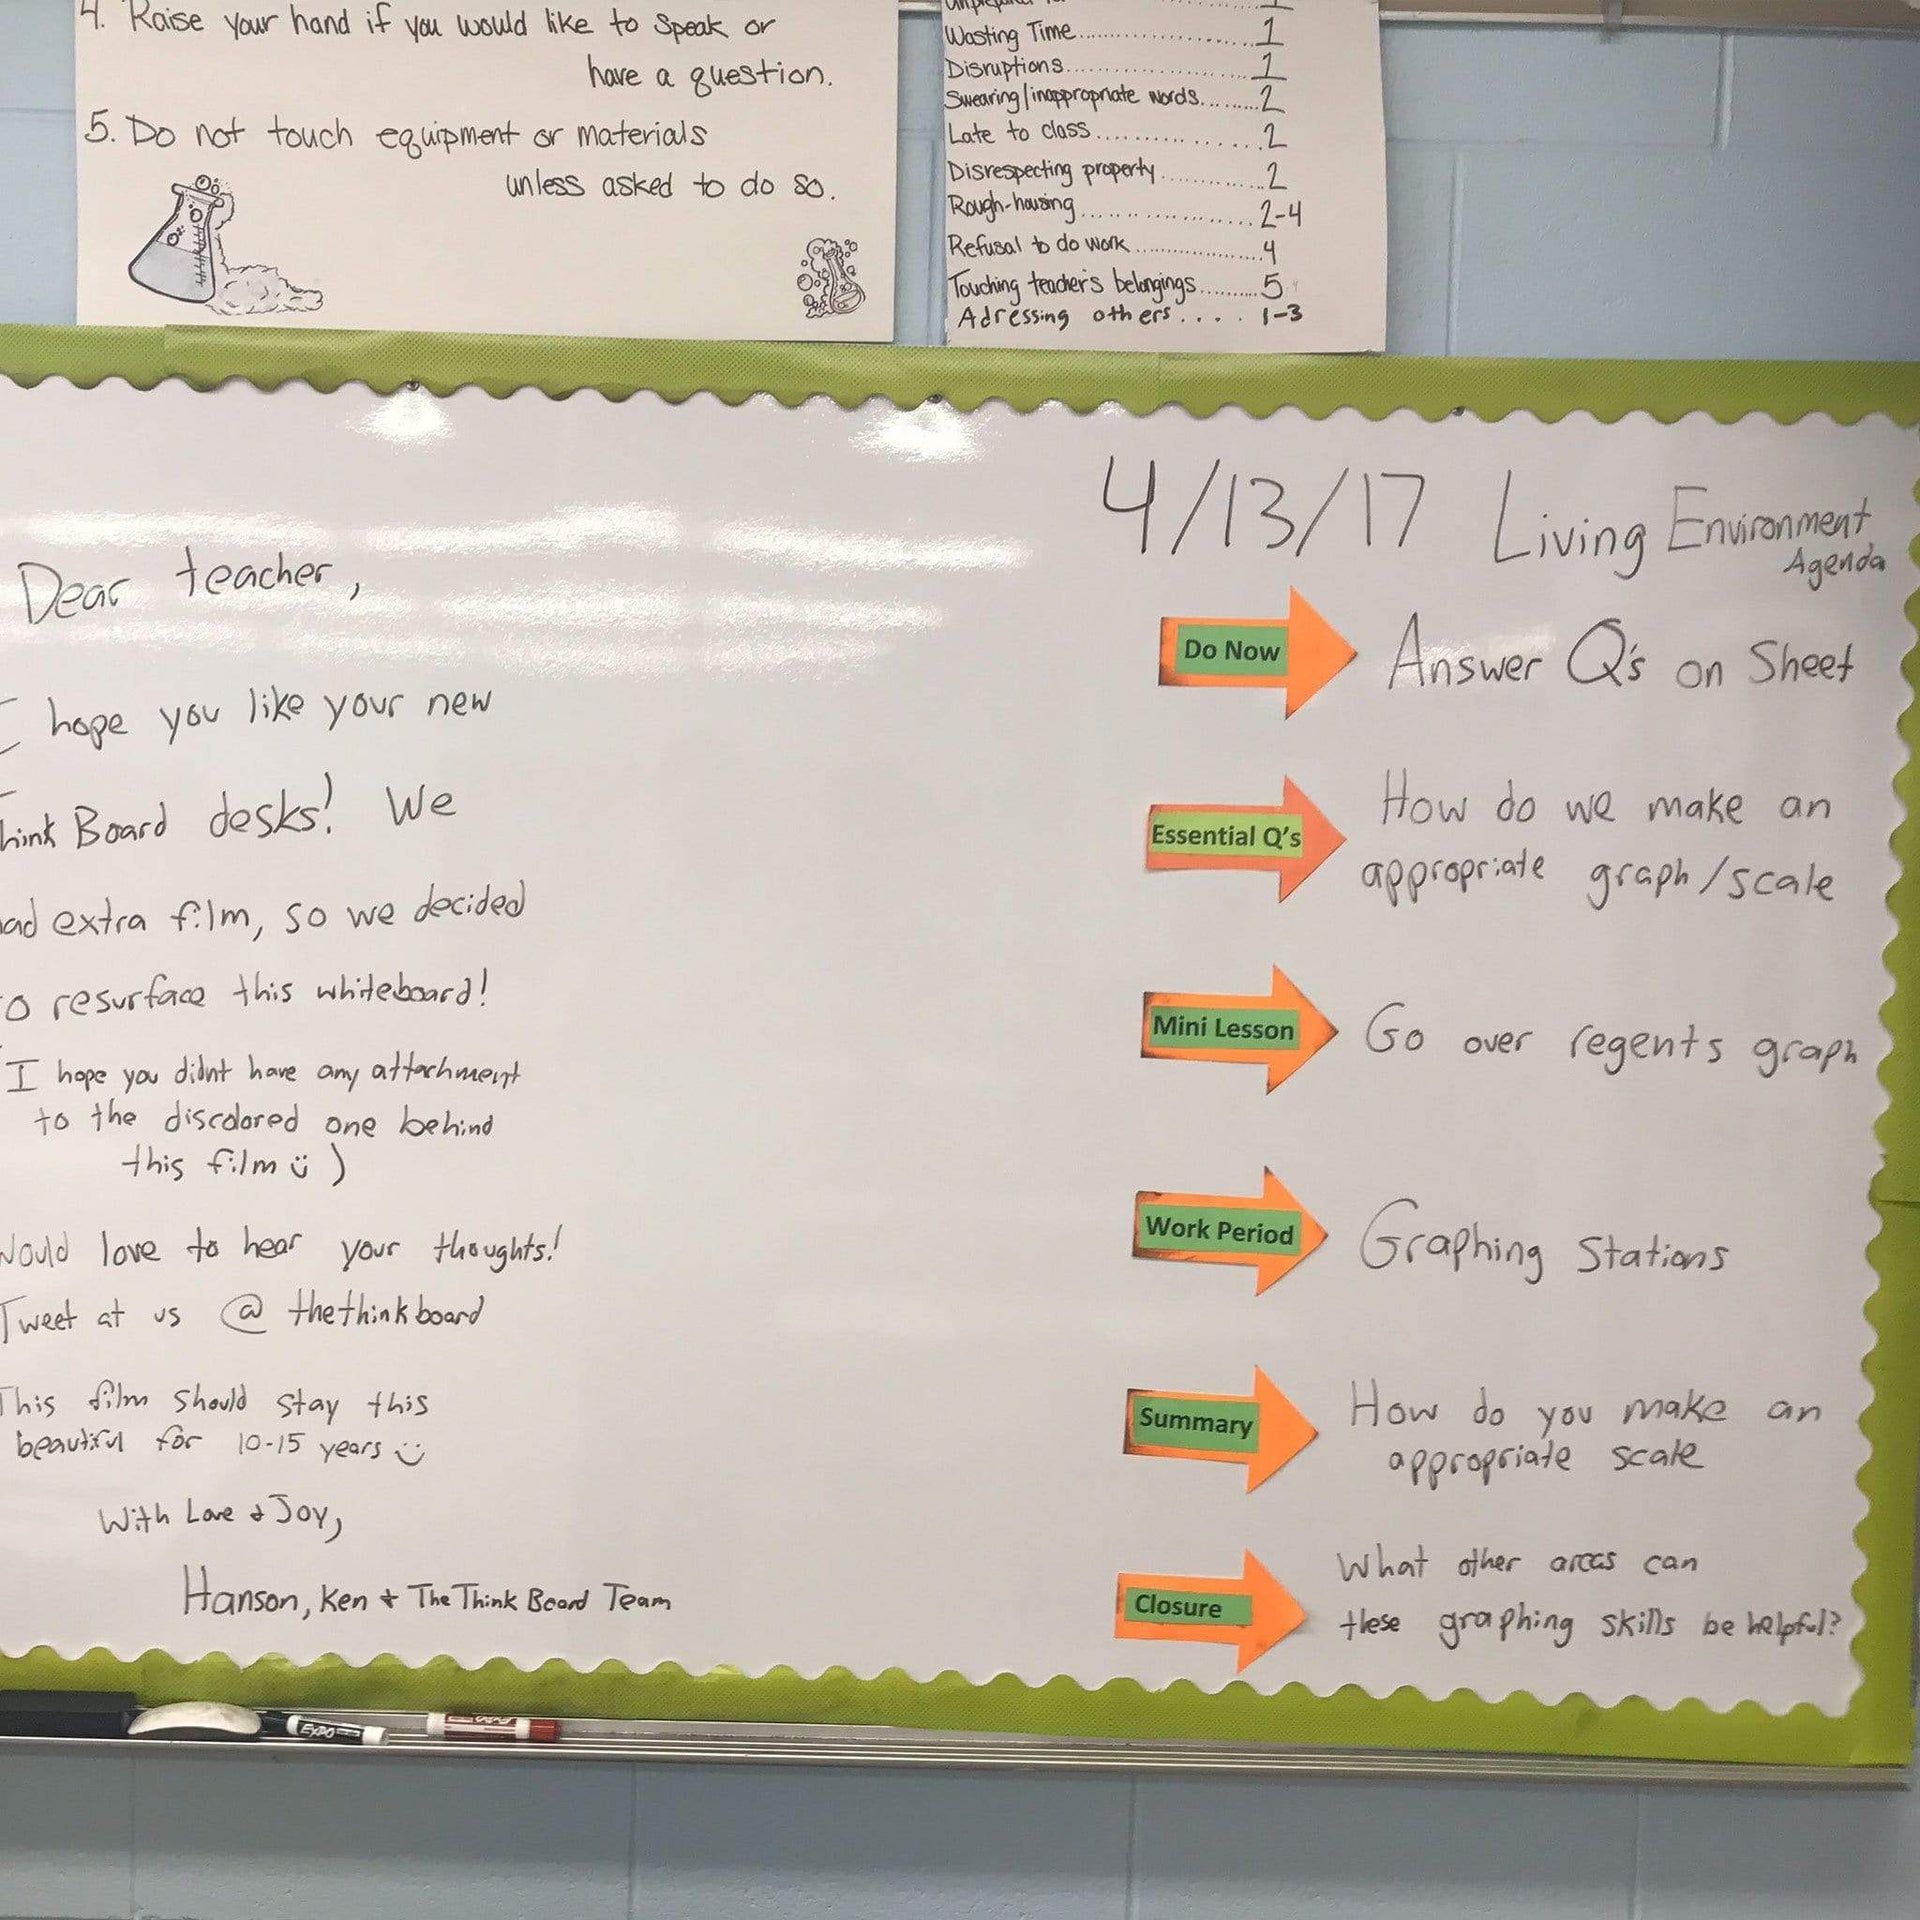 4. Raise your hand if you would like to speak or
have a question.
5. Do not touch equipment or materials
unless asked to do so.
Wasting Time.......................1
Disruptions.......................1
Swearing/inappropriate words.........2
Late to class..................2
Disrespecting property.............2
Rough-housing.....................2-4
Refusal to do work...............4
Touching teacher's belongings..........5
Adressing others.... 1-3
Dear teacher,
I hope you like your new
hink Board desks! We
ad extra film, so we decided
o resurface this whiteboard!
I hope you didnt have any attachment
to the discolored one behind
this film ☺)
Would love to hear your thoughts!
Tweet at us @ thethinkboard
This film should stay this
beautiful for 10-15 years ☺
With Love & Joy,
Hanson, Ken + The Think Board Team
4/13/17 Living Environment
Agenda
Do Now Answer Q's on Sheet
Essential Q's How do we make an
appropriate graph/scale
Mini Lesson Go over regents graph
Work Period Graphing Stations
Summary How do you make an
appropriate scale
Closure What other areas can
these graphing skills be helpful?
EXPO